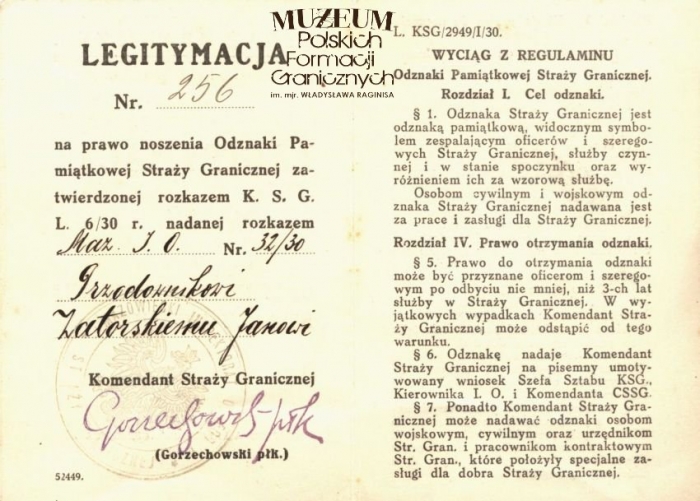 LEGITYMACJA
Nr. 256
na prawo noszenia Odznaki Pa-
miątkowej Straży Granicznej za-
twierdzonej rozkazem K. S. G.
L. 6/30 r. nadanej rozkazem
Maz. I. O. Nr. 32/30
Przodownikowi
Zatorskiemu Janowi
Komendant Straży Granicznej
Gorzechowski płk
(Gorzechowski płk.)
52449.
MUZEUM
Polskich
Formacji
Granicznych
im. mjr. WŁADYSŁAWA RAGINISA
L. KSG/2949/I/30.
WYCIĄG Z REGULAMINU
Odznaki Pamiątkowej Straży Granicznej.
Rozdział I. Cel odznaki.
§ 1. Odznaka Straży Granicznej jest
odznaką pamiątkową, widocznym symbo-
lem zespalającym oficerów i szerego-
wych Straży Granicznej, służby czyn-
nej i w stanie spoczynku oraz wy-
różnieniem ich za wzorową służbę.
Osobom cywilnym i wojskowym od-
znaka Straży Granicznej nadawana jest
za prace i zasługi dla Straży Granicznej.
Rozdział IV. Prawo otrzymania odznaki.
§ 5. Prawo do otrzymania odznaki
może być przyznane oficerom i szerego-
wym po odbyciu nie mniej, niż 3-ch lat
służby w Straży Granicznej. W wy-
jątkowych wypadkach Komendant Stra-
ży Granicznej może odstąpić od tego
warunku.
§ 6. Odznakę nadaje Komendant
Straży Granicznej na pisemny umoty-
wowany wniosek Szefa Sztabu KSG.,
Kierownika I. O. i Komendanta CSSG.
§ 7. Ponadto Komendant Straży Gra-
nicznej może nadawać odznaki osobom
wojskowym, cywilnym oraz urzędnikom
Str. Gran. i pracownikom kontraktowym
Str. Gran., które położyły specjalne za-
sługi dla dobra Straży Granicznej.